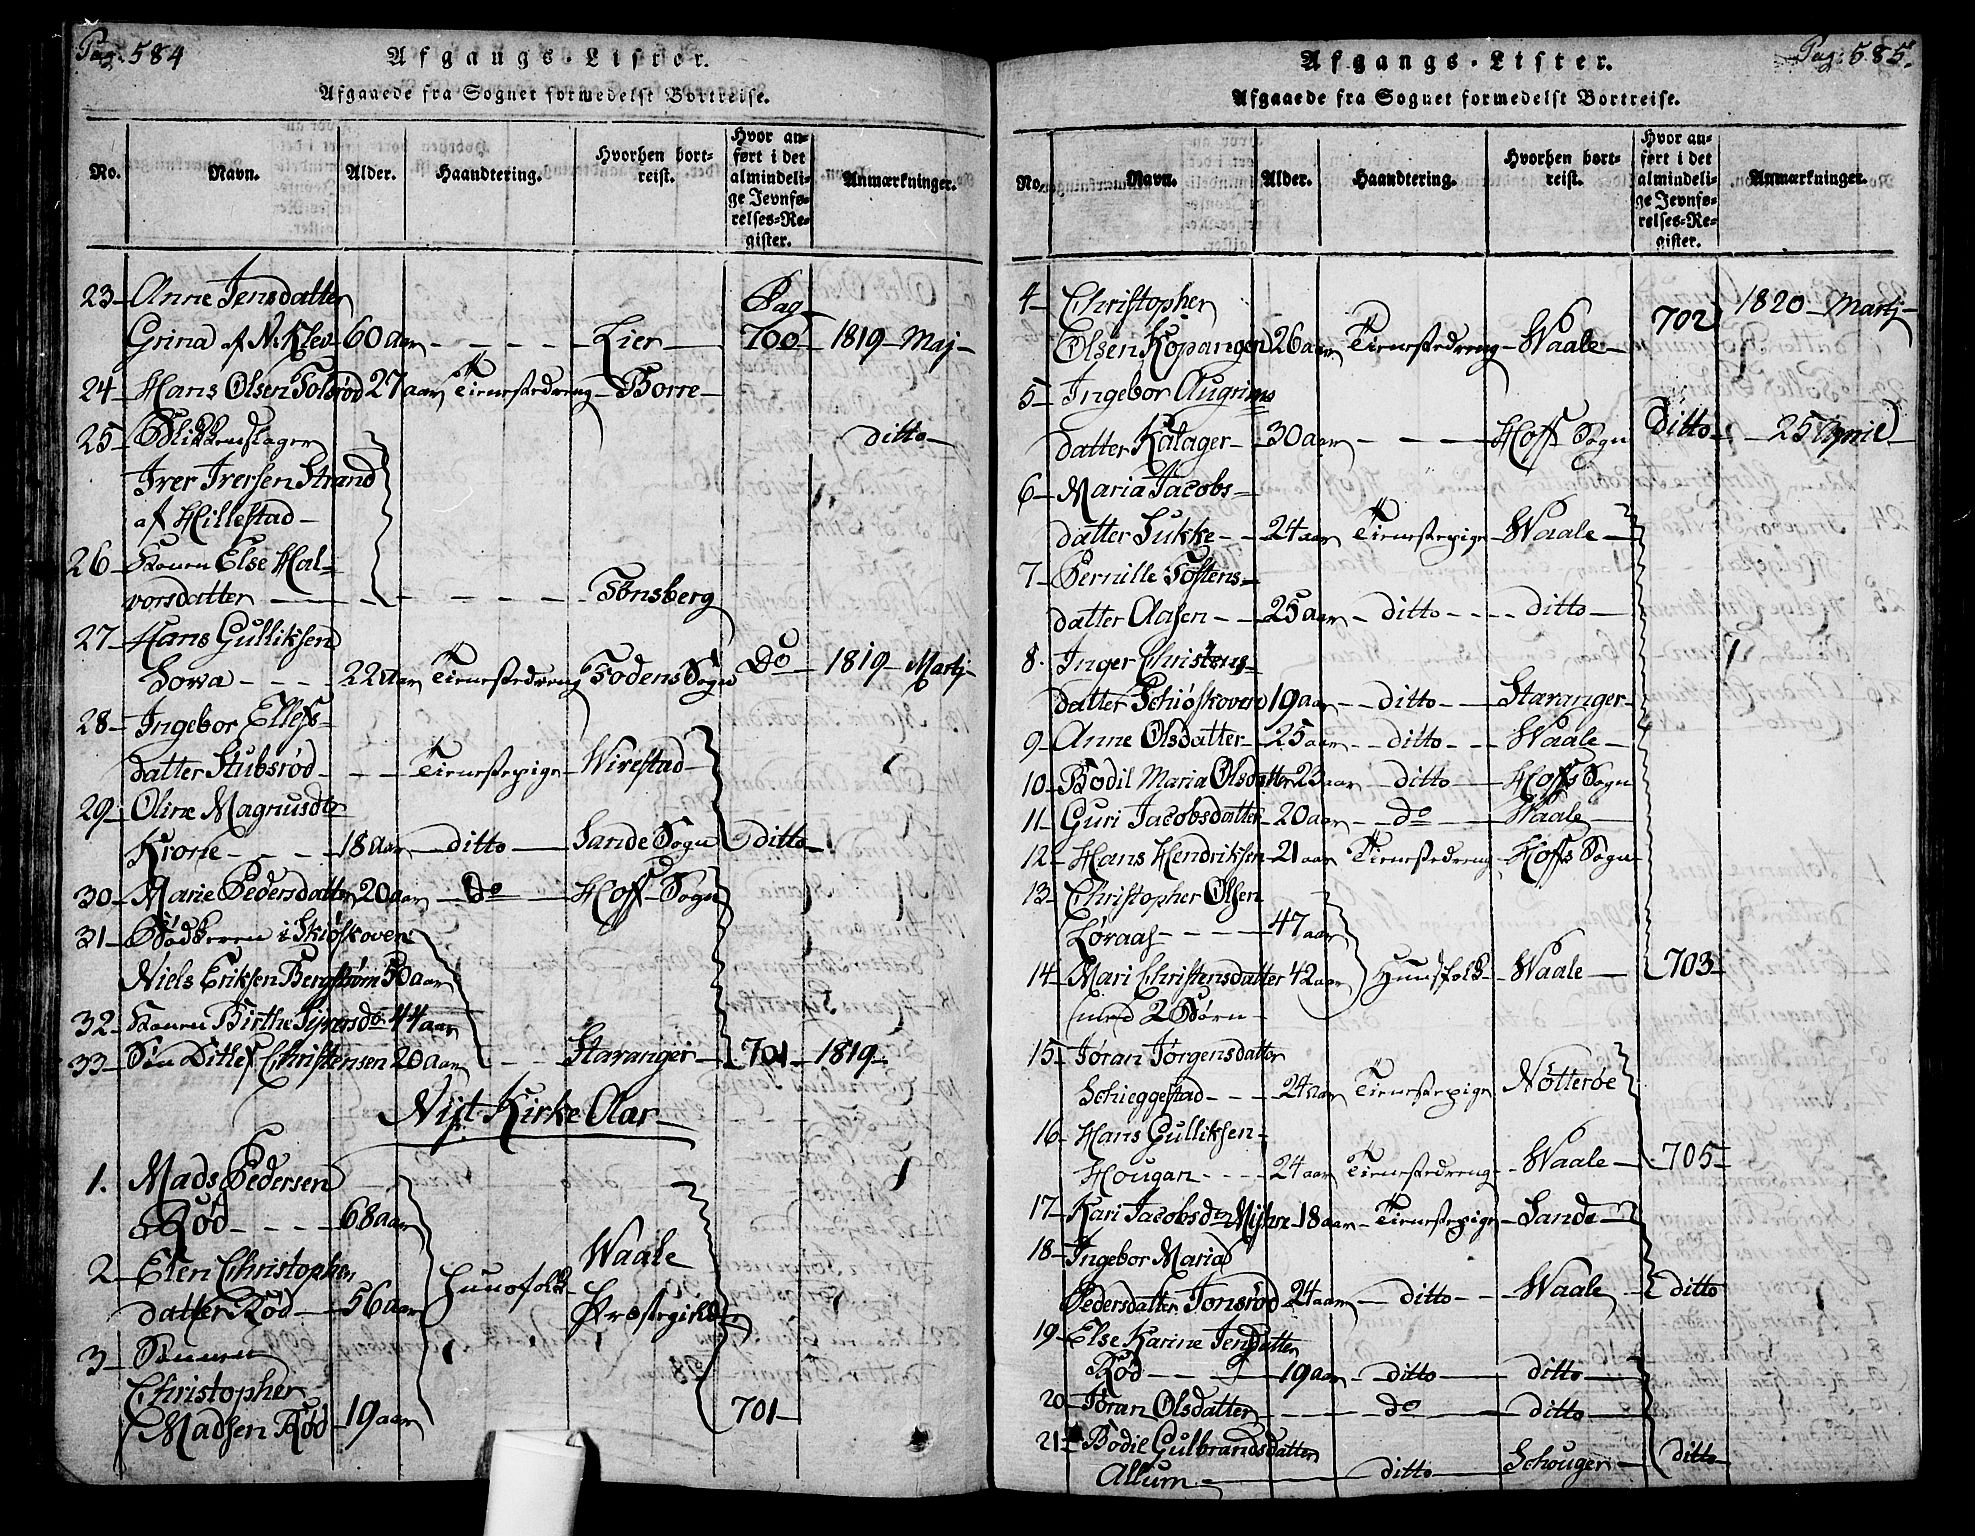 Pag. 584
Afgangs-Lister.
Afgaaede fra Sognet formedelst Bortreise.
No.
Navn.
Alder.
Haandtering.
Hvorhen bortreist.
Hvor anført i det almindelige Jevnførelses-Register.
Anmærkninger.
23 Anne Jensdatter
Grina af N. Klev 60 aar Lier Pag. 700 1819 Maj
24 Hans Olsen Tolsrød 27 aar Tienestedreng Borre
25 Blikkenslager ditto
Iver Iversen Strand
af Hillestad
26 Konen Else Hal-
vorsdatter Tønsberg
27 Hans Gulliksen
Sova 22 aar Tienestedreng Fodens Sogn Do 1819 Martj
28 Ingebor Ellefs-
datter Stubsrød Tienestepige Wirestad
29 Oline Magnusdtr
Krone 18 aar ditto Sande Sogn ditto
30 Marie Pedersdatter 20 aar do Hoff Sogn
31 Bødkeren i Skiøskoven
Niels Eriksen Bergstrøm 50 aar
32 Konen Birthe 44 aar
33 Søn Ditlef Christensen 20 aar Stavanger 701 1819
Nyt Kirke Aar
1. Mads Pedersen
Rød 68 aar
2 Elen Christopher
datter Rød 56 aar Huusfolk Waale Præstegield
3 Sønnen
Christopher
Madsen Rød 19 aar 701
Pag. 585.
Afgangs-Lister.
Afgaaede fra Sognet formedelst Bortreise.
No.
Navn.
Alder.
Haandtering.
Hvorhen bortreist.
Hvor anført i det almindelige Jevnførelses-Register.
Anmærkninger.
4 Christopher
Olsen Kopangen 26 aar Tienestedreng Waale 702 1820 Martj
5 Ingebor Augrims
datter Kalager 30 aar Hoff Sogn ditto 25 April
6 Maria Jacobs-
datter Sukke 24 aar Tienestepige Waale
7 Pernille Tostens-
datter Aasen 25 aar ditto ditto
8. Inger Christens-
datter Schiøskoven 19 aar ditto Stavanger
9 Anne Olsdatter 25 aar ditto Waale
10 Bodil Maria Olsdatter 23 aar ditto Hoffs Sogn
11 Guri Jacobsdatter 20 aar do Waale
12 Hans Hendriksen 21 aar Tienestedreng Hoffs Sogn
13 Christopher Olsen
Løraas 47 aar
14 Mari Christensdatter 42 aar Huusfolk Waale 703
med 2 Børn
15 Jøran Jørgensdatter
Schieggestad 24 aar Tienestepige Nøtterøe
16 Hans Gulliksen
Hougan 24 aar Tienestedreng Waale 705
17 Kari Jacobsdtr 18 aar Tienestepige Sande
18 Ingebor Maria
Pedersdatter Tonsrød 24 aar ditto Waale ditto
19 Else Karine Jensdatter
Rød 19 aar ditto ditto
20 Jøran Olsdatter do ditto
21 Bodil Gulbrandsdatter
Allum ditto Schouger ditto